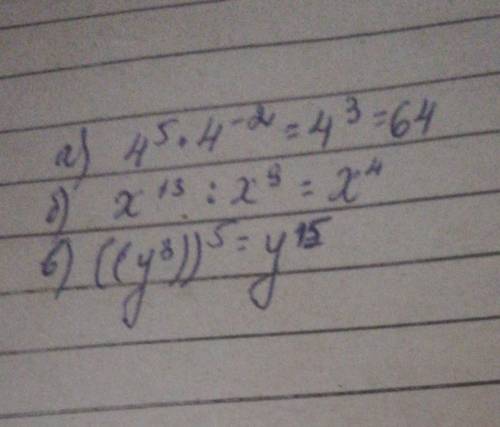 а) 4⁵ · 4⁻² = 4³ = 64
б) x¹³ : x⁹ = x⁴
в) ((y³))⁵ = y¹⁵